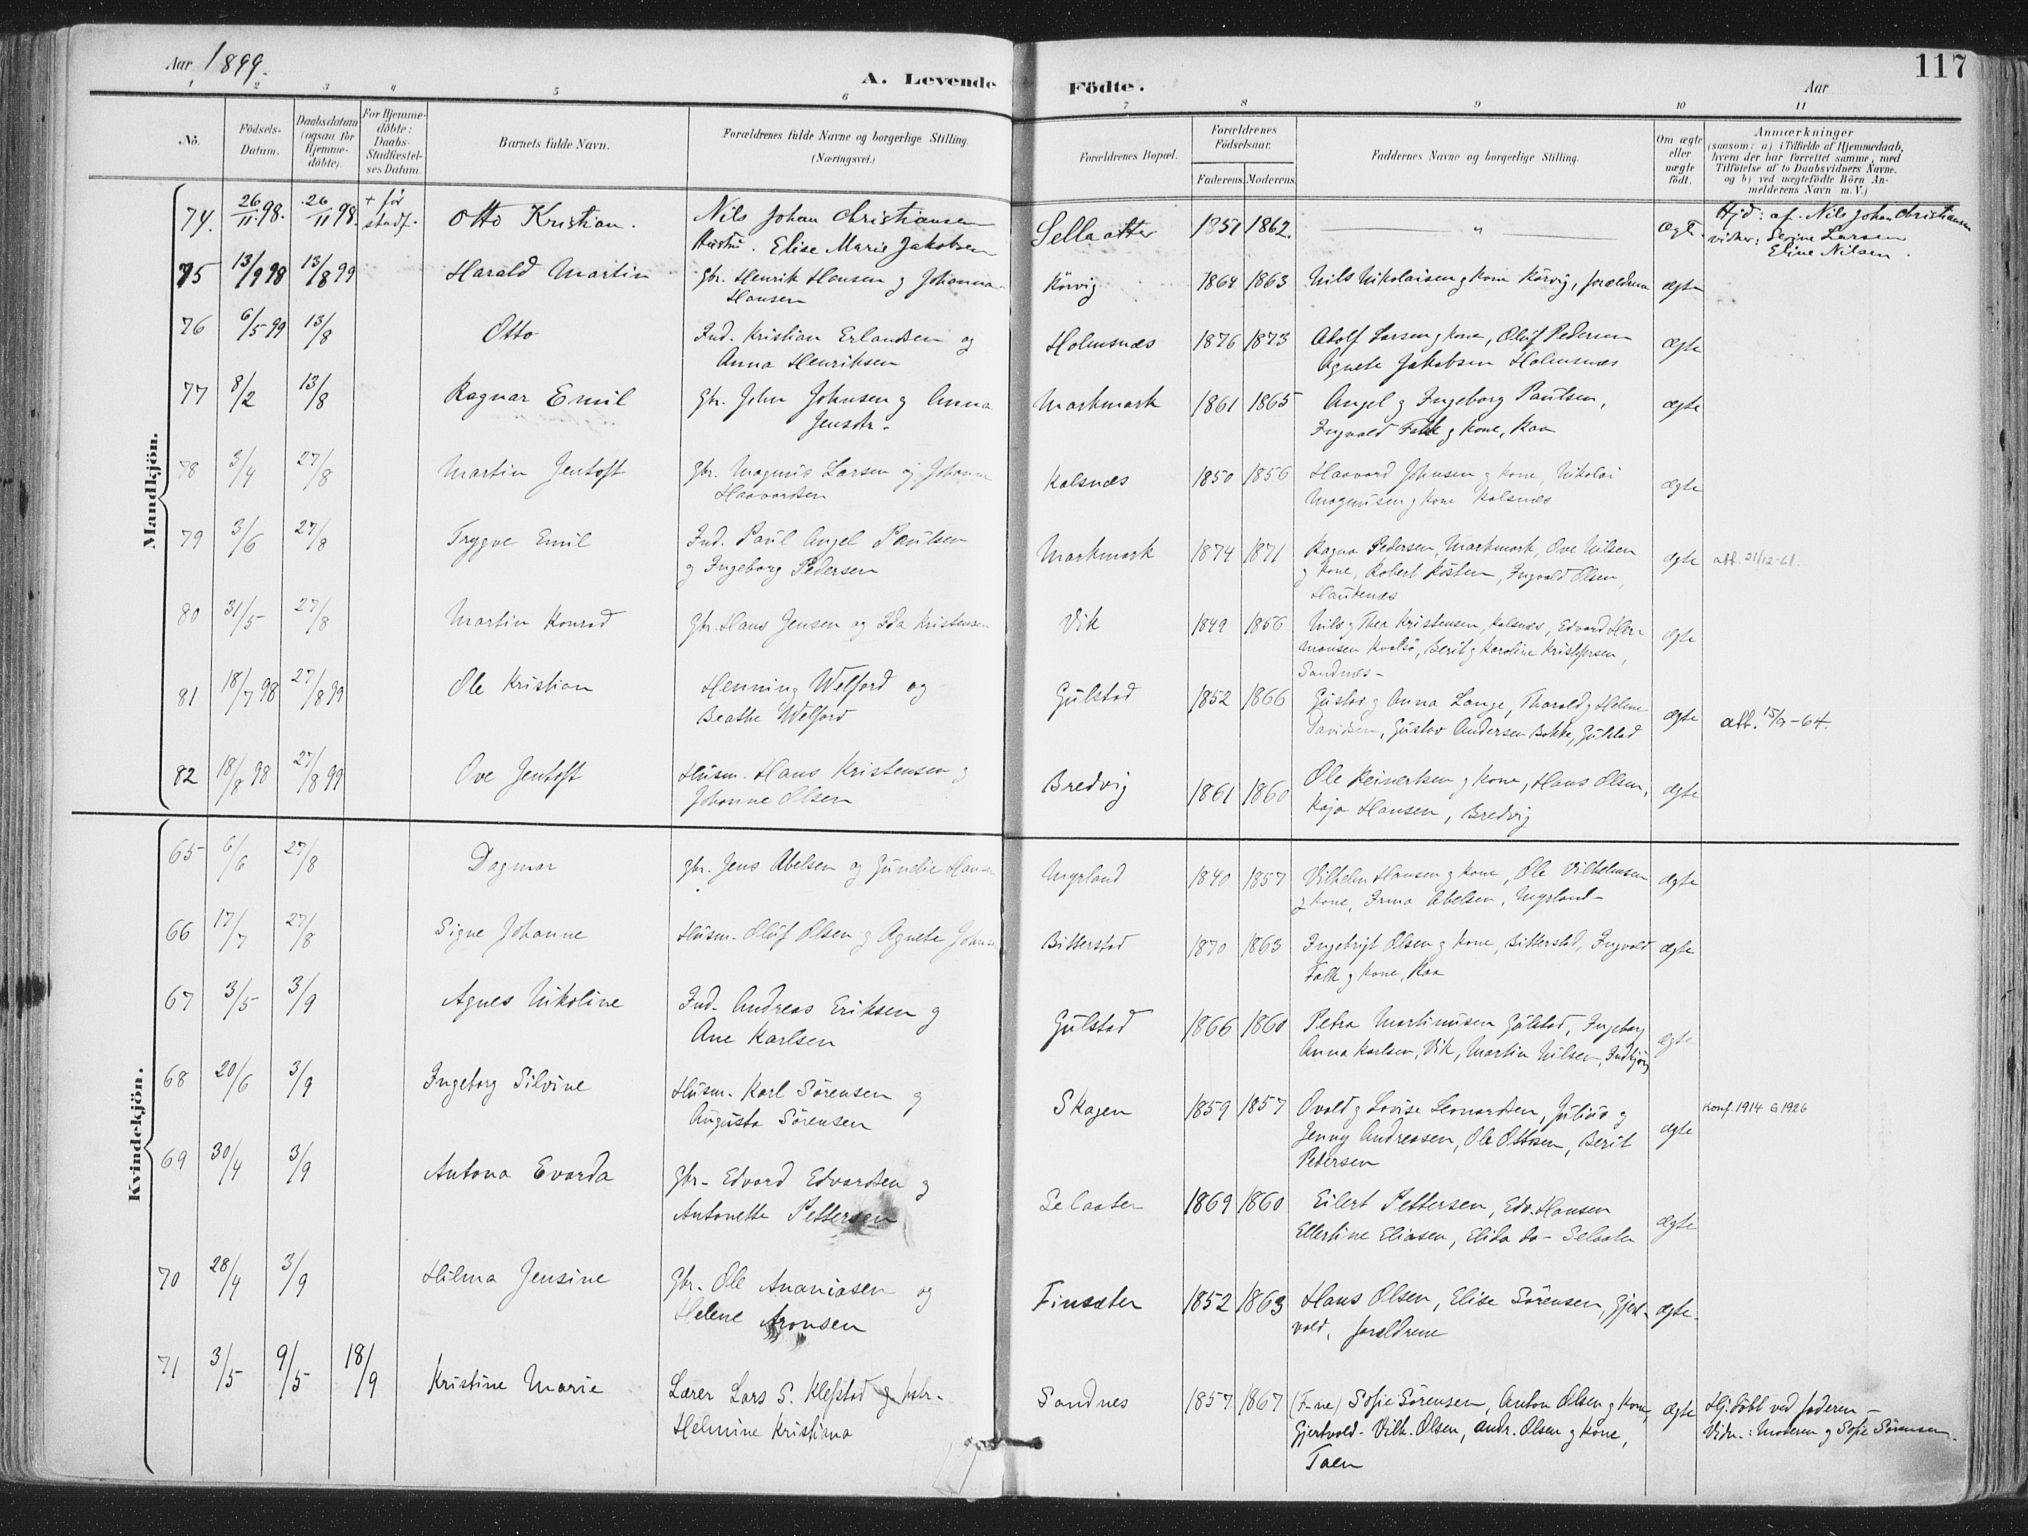 Aar 1899.
A. Levende Födte.
Aar
117
1 2 3 4 5 6 7 8 9 10 11
No.
Födsels-Datum.
Daabsdatum (ogsaa for Hjemme-döbte).
For Hjemme-döbte: Daabs-Stadfæstel-ses Datum.
Barnets fulde Navn.
Forældrenes fulde Navne og borgerlige Stilling. (Næringsvei.)
Forældrenes Bopæl.
Forældrenes Födselsaar.
Faderens. Moderens.
Faddernes Navne og borgerlige Stilling.
Om ægte eller uægte födt.
Anmærkninger (saasom: a) i Tilfælde af Hjemmedaab, hvem der har forrettet samme, med Tilföielse af to Daabsvidners Navne. og b) ved uægtefödte Börn An-melderens Navn m. V.)
Mandkjön.
74. 26/11 98. 26/11 98. + før stadf. Otto Kristian. Nils Johan Christiansen Sellaatter 1857 1862. — " — ægt. Hjd: af. Nils Johan Christiansen
Hustru. Elise Marie Jakobsen vidner: Serine Larsen
Eline Nilsen.
75 13/9 98 13/8 99 Harald Martin Gbr. Henrik Hansen og Johanna Körvig 1864 1863 Nils Nikolaisen g kone Körvig, forældrene ægte
Hansen
76 6/5-99 13/8 Otto Ind. Kristian Erlandsen og Holmsnæs 1876 1873 Adolf Larsen g kone, Oluf Pedersen ægte
Anna Henriksen Agnete Jakobsen Holmsnæs
77 8/2 13/8 Ragnar Emil Gbr. John Johnsen g Anna Markmark 1861 1865 Angel g Ingeborg Paulsen, ægte
Jensdr. Ingvald Falk g kone, Kaa
78 3/4 27/8 Martin Jentoft Gbr. Magnus Larsen og Johanne Kalsnæs 1850 1856 Haavard Johnsen g kone, Nikolai ægte
Haavardsen Magnusen g kone Kalsnæs
79 3/6 27/8 Trygve Emil Ind. Paul Angel Paulsen Markmark 1874 1871 Ragna Pedersen, Markmark, Ove Nilsen ægte att. 21/12-61.
og Ingeborg Pedersen g kone, Robert Kösten, Ingvald Olsen,
80 31/5 27/8 Martin Konrad Gbr. Hans Jensen og Ida Kristensen Vik 1849 1856 Nils g Thea Kristensen, Kalsnæs, Edvard Her- ægte
mansen Kvalsö, Berit g Karoline Kristofersen,
Sandnes-
81 18/7 98 27/8 99 Ole Kristian Henning Welford og Gulstad 1852 1866 Gustav g Anna Lange, Tharald g Helene ægte att. 15/9-64.
Beathe Welford Davidsen, Gustav Andersen Bakke, Gulstad
82 18/8 98 27/8 99 Ove Jentoft Husm. Hans Kristensen g Bredvig 1861 1860 Ole Reinertsen g kone, Hans Olsen, ægte
Johanne Olsen Kaja Hansen, Bredvig
Kvindekjön.
65 6/6 27/8 Dagmar Gbr. Jens Abelsen og Gundie Hansen Myrland 1840 1857 Vilhelm Hansen g kone, Ole Vilhelmsen ægte
g kone, Irma Abelsen, Myrland-
66 17/7 27/8 Signe Johanne Husm. Oluf Olsen g Agneta Bitterstad 1870 1863 Ingebrigt Olsen g kone, Bitterstad, Ingvald ægte
Falk g kone, Kaa
67 3/5 3/9 Agnes Nikoline Ind. Andreas Eriksen g Gulstad 1866 1860 Petra Martinusen Gulstad, Ingeborg ægte
Ane Karlsen Anna Karlsen, Vik, Martin Nilsen,
68 20/6 3/9 Ingeborg Silvine Husm. Karl Sörensen g Skagen 1859 1857 Ovald g Lovise Leonardsen, Julius g ægte Konf. 1914 G 1926
Augusta Sörensen Jenny Andreasen, Ole Ottosen, Berit
Pedersen
69 30/4 3/9 Antona Evarda Gbr- Edvard Edvardsen g Selaater 1869 1860 Eilert Pettersen, Edv. Hansen ægte
Antonette Pettersen Ellertine Eliasen, Elida do- Selaater
70 28/4 3/9 Hilma Jensine Gbr. Ole Ananiasen og Finsæter 1852 1863 Hans Olsen, Elise Sörensen, Gjert- ægte-
Helene Aronsen vold, forældrene
71 3/5 9/5 18/9 Kristine Marie Lærer Lars S. Klefstad g hstr. Sandnes 1857 1867 (F-ne) Sofie Sörensen, Anton Olsen g kone, ægte Hj. döbt ved faderen -
Helmine Kristina Gjertvold- Vilh. Olsen, Andr. Olsen g kone, Vidn.: Moderen g Sofie Sörensen.
Taen